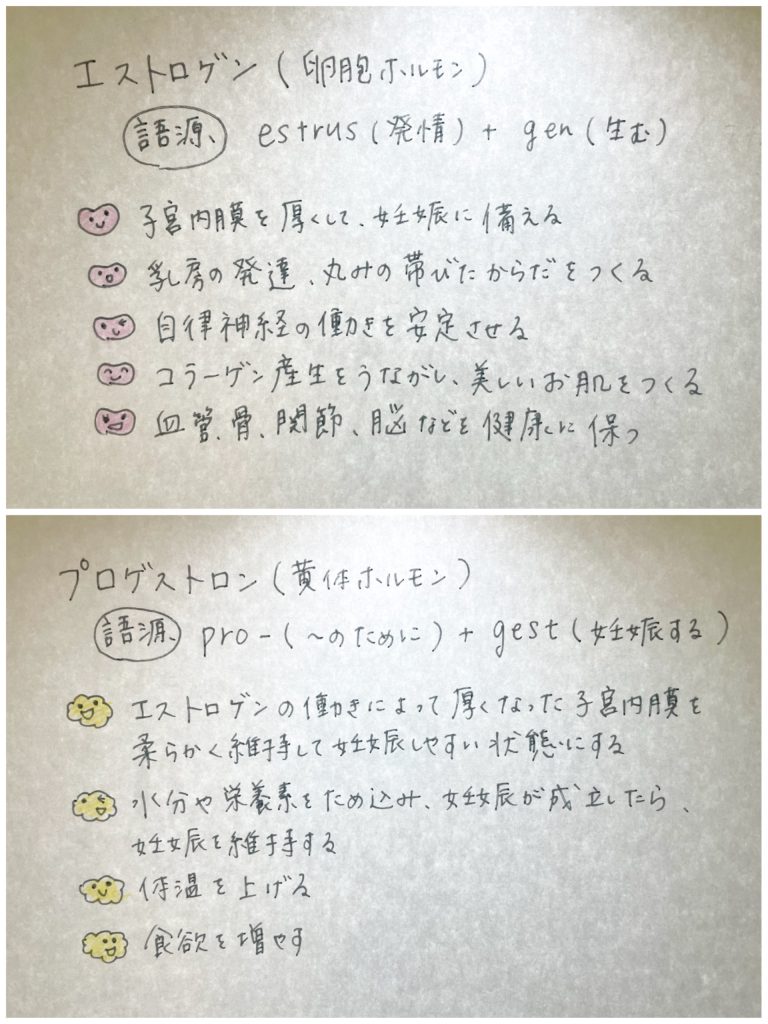 エストロゲン(卵胞ホルモン)
語源、 estrus(発情)+ gen(生む)
子宮内膜を厚くして、妊娠に備える
乳房の発達、丸みの帯びたからだをつくる
自律神経の働きを安定させる
コラーゲン産生をうながし、美しいお肌をつくる
血管、骨、関節、脳などを健康に保つ
プロゲストロン(黄体ホルモン)
語源、 pro-(〜のために)+ gest(妊娠する)
エストロゲンの働きによって厚くなった子宮内膜を
柔らかく維持して妊娠しやすい状態にする
水分や栄養素をため込み、妊娠が成立したら、
妊娠を維持する
体温を上げる
食欲を増やす